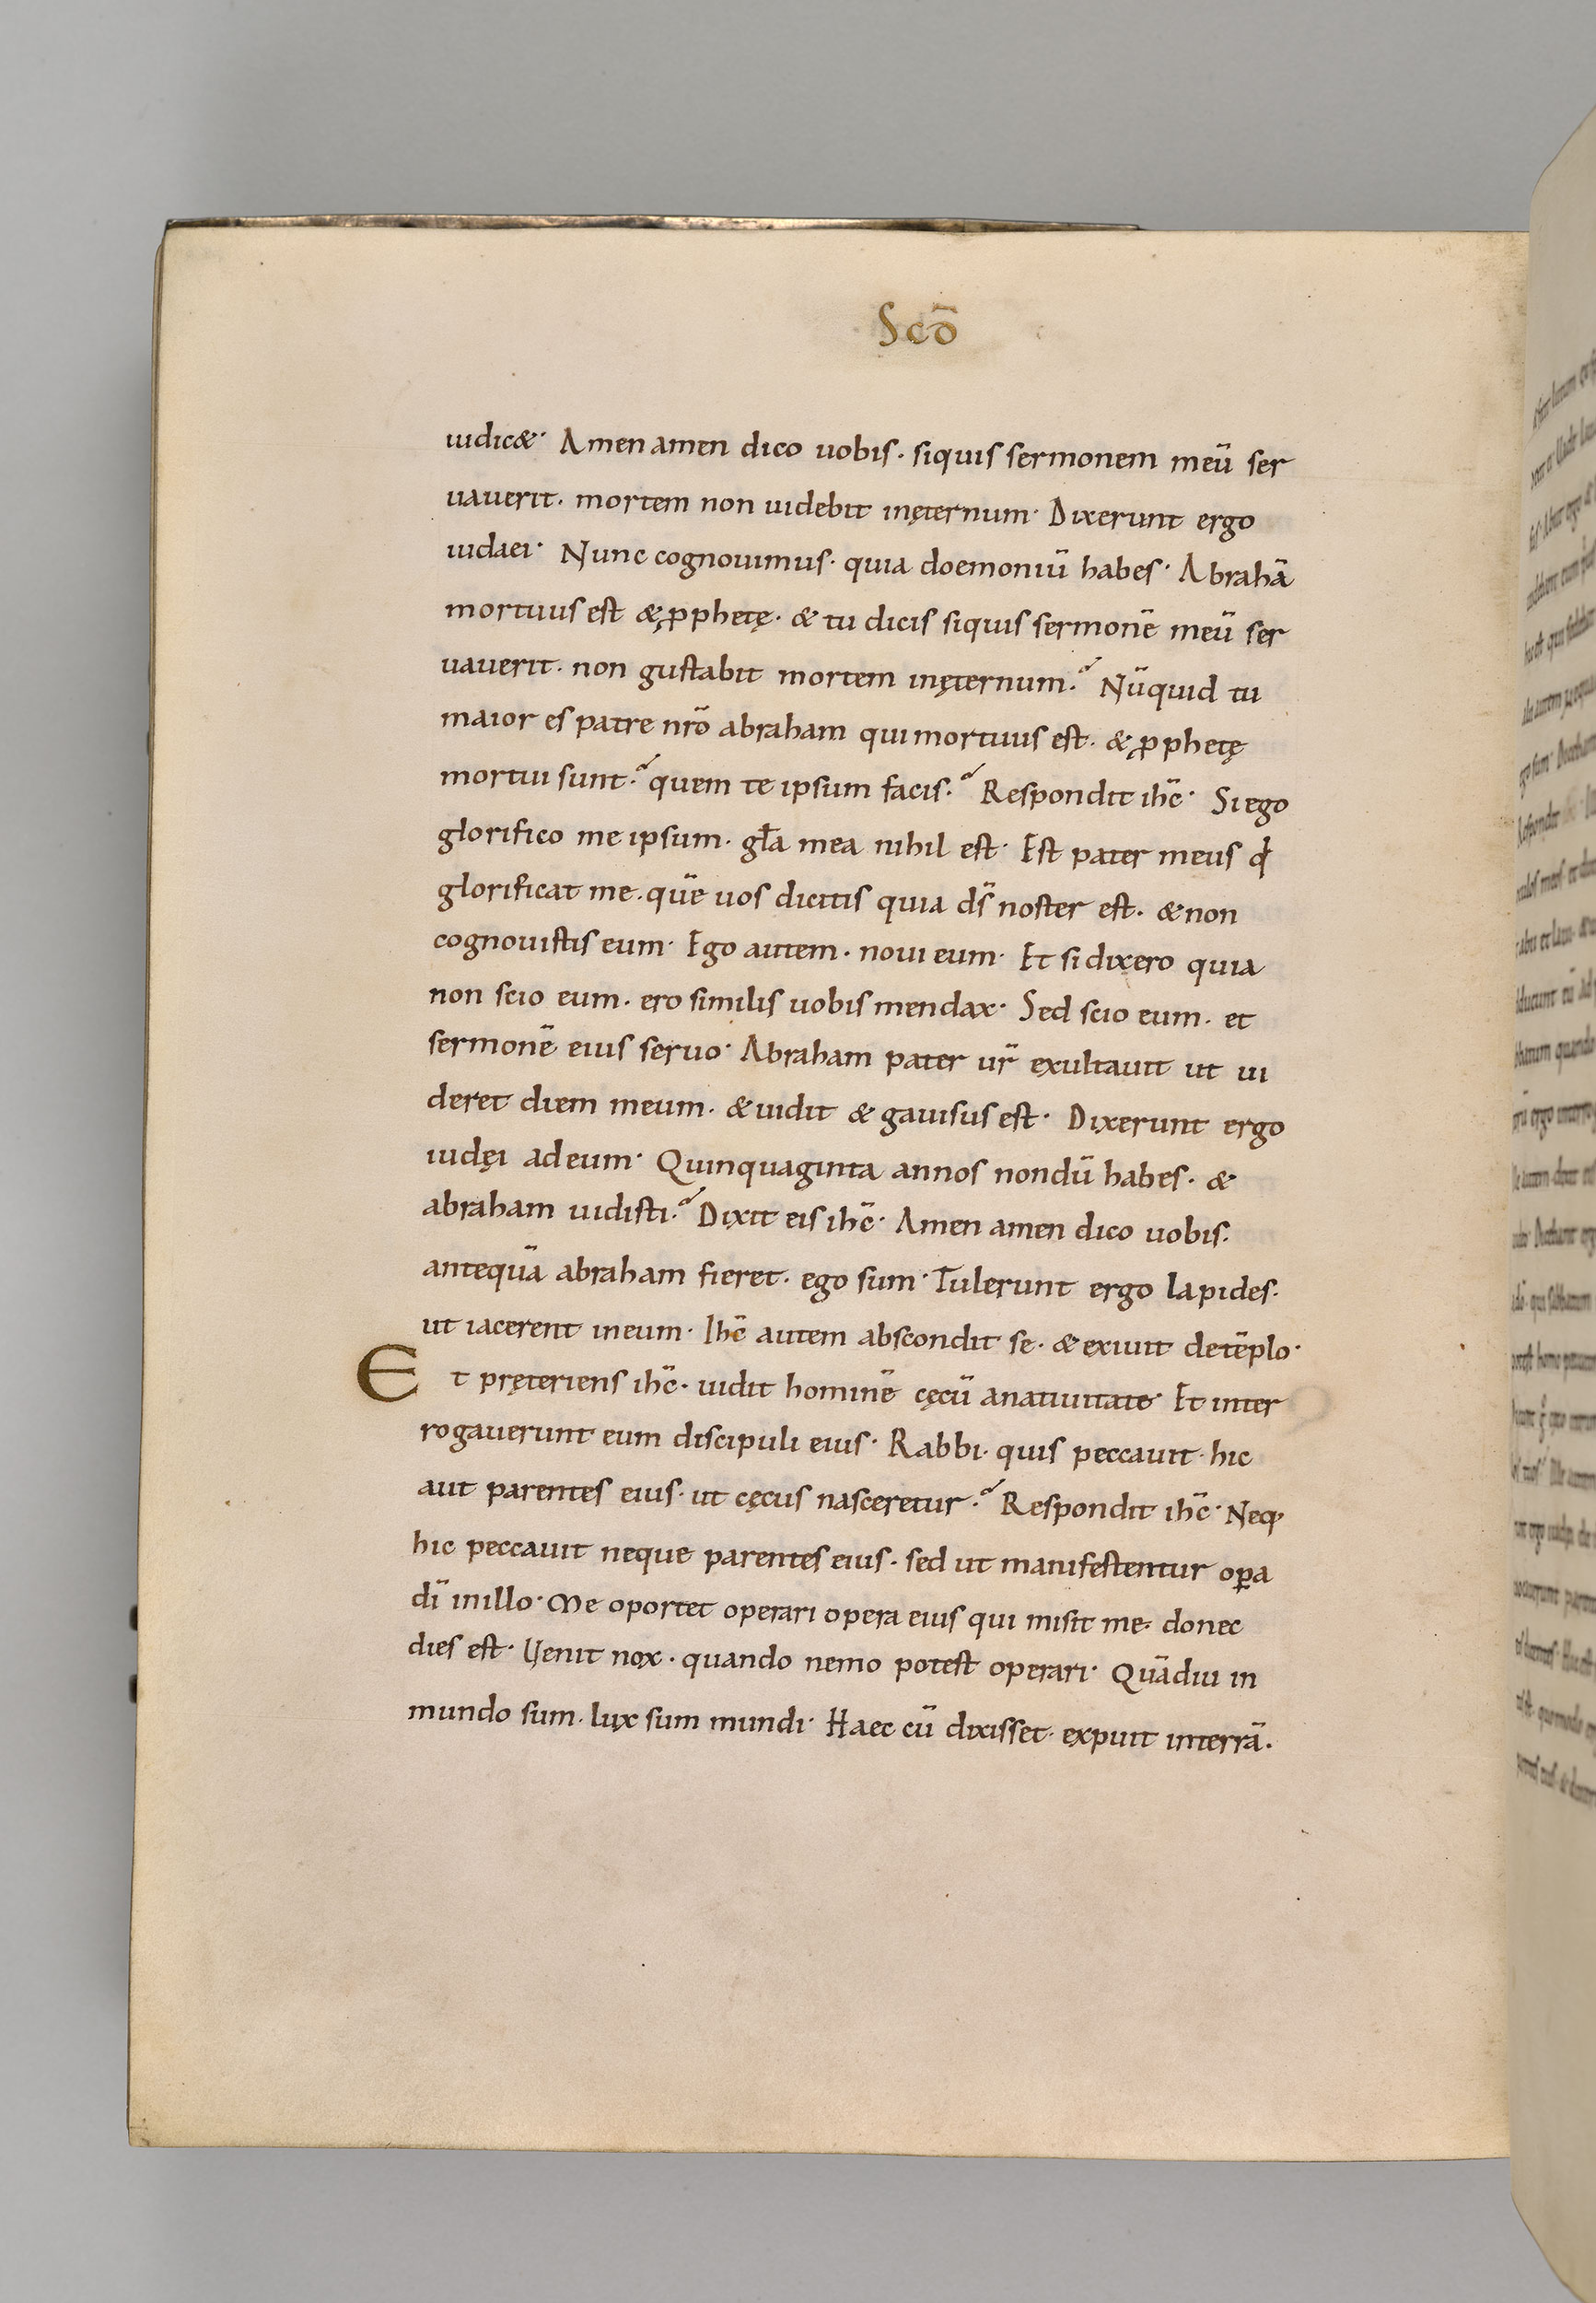 Scō
iudic&· Amen amen dico uobis· siquis sermonem meū ser
uauerit· mortem non uidebit inęternum· Dixerunt ergo
iudaei· Nunc cognouimus· quia doemoniū habes· Abrahā
mortuus est & ꝓphetę· & tu dicis siquis sermonē meū ser
uauerit· non gustabit mortem inęternum? Nūquid tu
maior es patre nrō abraham qui mortuus est· & ꝓphetę
mortui sunt? quem te ipsum facis? Respondit ihc̄· Si ego
glorifico me ipsum· gła mea nihil est· Est pater meus qđ
glorificat me· quē uos dicitis quia ds̄ noster est· & non
cognouistis eum· Ego autem· noui eum· Et si dixero quia
non scio eum· ero similis uobis mendax· Sed scio eum· et
sermonē eius seruo· Abraham pater ur̄ exultauit ut ui
deret diem meum· & uidit & gauisus est· Dixerunt ergo
iudęi ad eum· Quinquaginta annos nondū habes· &
abraham uidisti? Dixit eis ihc̄· Amen amen dico uobis·
antequā abraham fieret· ego sum· Tulerunt ergo lapides·
ut iacerent in eum· Ihc̄ autem abscondit se· & exiuit detēplo·
Et pręteriens ihc̄· uidit hominē cęcū anatiuitate· Et inter
rogauerunt eum discipuli eius· Rabbi· quis peccauit· hic
aut parentes eius· ut cęcus nasceretur? Respondit ihc̄· Neq;
hic peccauit neque parentes eius· sed ut manifestentur oꝑa
dī in illo· Me oportet operari opera eius qui misit me· donec
dies est· Uenit nox· quando nemo potest operari· Quādiu in
mundo sum· lux sum mundi· Haec cū dixisset· expuit interrā·